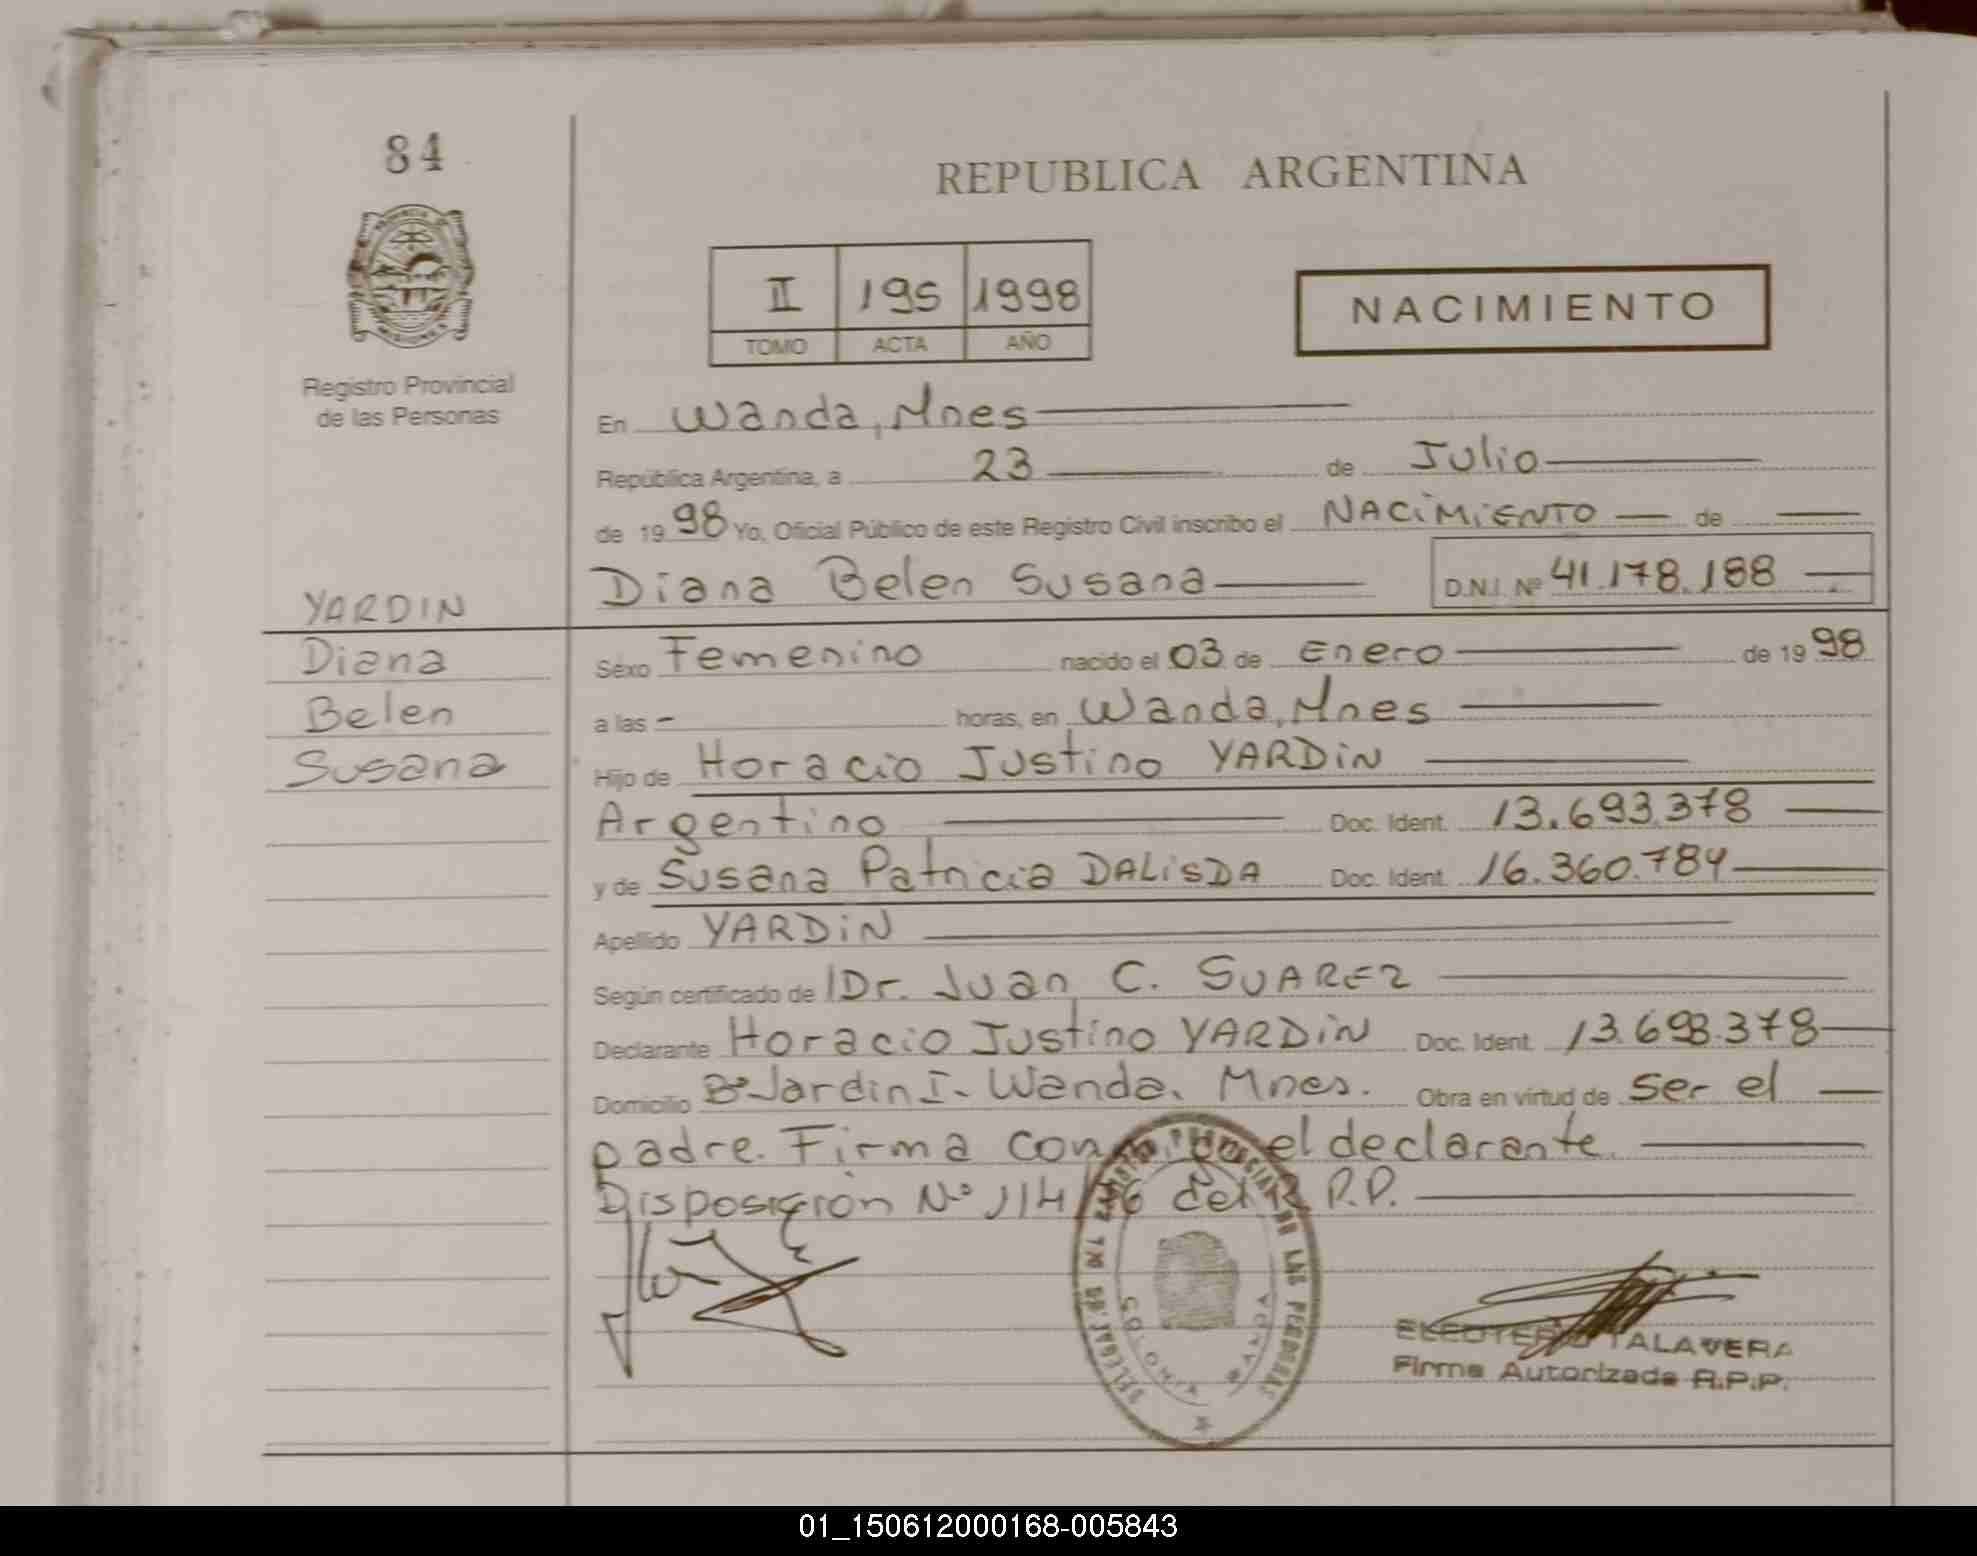 84
REPUBLICA ARGENTINA
II 195 1998
TOMO ACTA AÑO
NACIMIENTO
Registro Provincial
de las Personas
En Wanda, Mnes
República Argentina, a 23 de Julio
de 19 98 Yo, Oficial Público de este Registro Civil inscribo el NACIMIENTO de
Diana Belen Susana D.N.I. Nº 41.178.188
YARDIN
Diana
Belen
Susana
Sexo Femenino nacido el 03 de Enero de 19 98
a las - horas, en Wanda, Mnes
Hijo de Horacio Justino YARDIN
Argentino Doc. Ident. 13.693.378
y de Susana Patricia DALISDA Doc. Ident. 16.360.784
Apellido YARDIN
Según certificado de Dr. Juan C. SUAREZ
Declarante Horacio Justino YARDIN Doc. Ident. 13.693.378
Domicilio Bº Jardin I - Wanda, Mnes. Obra en virtud de Ser el
padre. Firma el declarante.
Disposición Nº 114 del R.P.P.
COLONIA WANDA
TALAVERA
Firma Autorizada R.P.P.
01_150612000168-005843